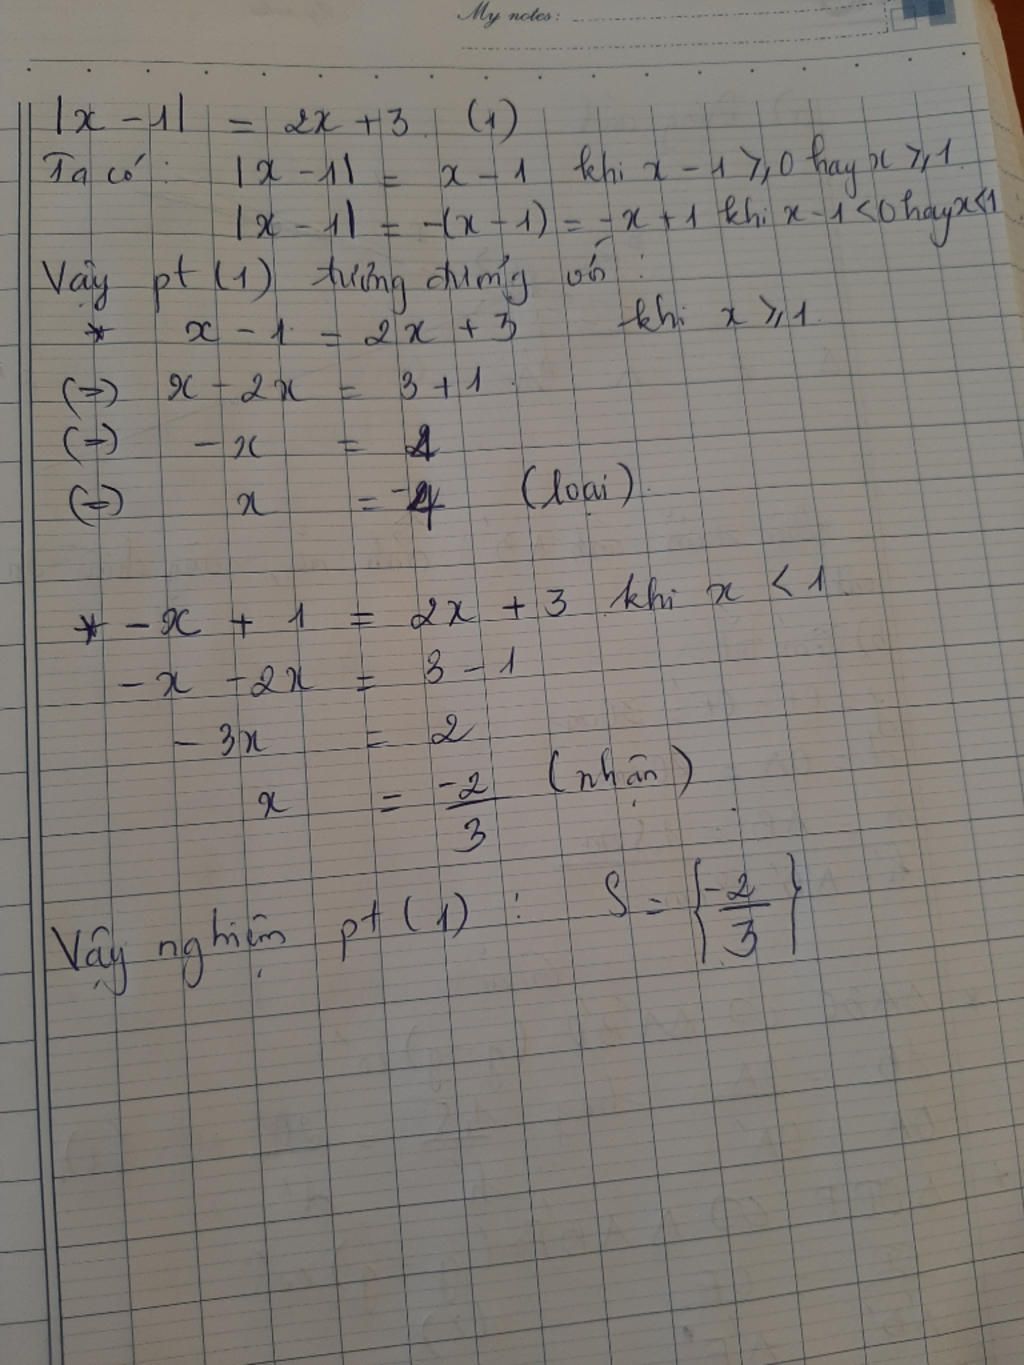 My notes:
|x - 1| = 2x + 3 (1)
Ta có: |x - 1| = x - 1 khi x - 1 ⩾ 0 hay x ⩾ 1
|x - 1| = -(x - 1) = -x + 1 khi x - 1 < 0 hay x < 1
Vậy pt (1) tương đương với:
* x - 1 = 2x + 3 khi x ⩾ 1
(=) x - 2x = 3 + 1
(=) - x = 4
(=) x = -4 (loại)
* - x + 1 = 2x + 3 khi x < 1
- x - 2x = 3 - 1
- 3x = 2
x = -2/3 (nhận)
Vậy nghiệm pt (1): S = {-2/3}